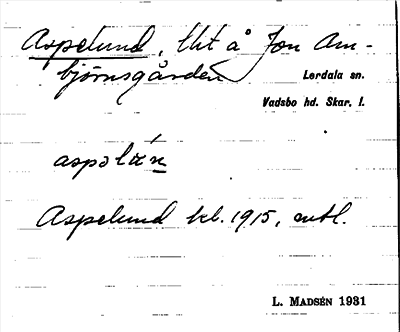 Aspelund, lht å Jon Am-
björnsgården
Lerdala sn.
Vadsbo hd. Skar. l.
aspəlǽn
Aspelund kl. 1915, mtl.
L. MADSÉN 1931